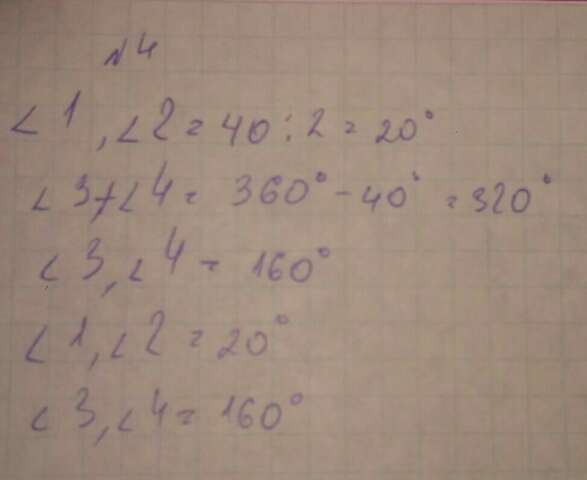 N4
∠1, ∠2 = 40 : 2 = 20°
∠3 + ∠4 = 360° - 40° = 320°
∠3, ∠4 = 160°
∠1, ∠2 = 20°
∠3, ∠4 = 160°